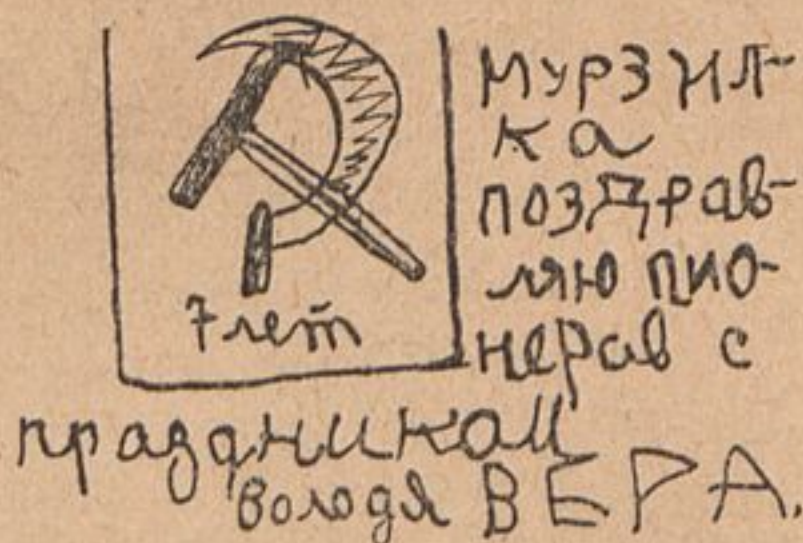 7 лет
МУРЗИЛ-
ка
поздрав-
ляю пио-
нерав с
праздником
володя ВЕРА.